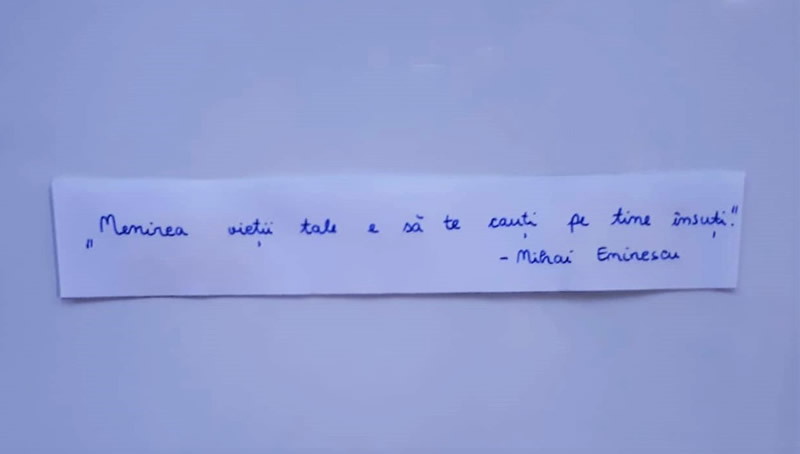 „Menirea vieții tale e să te cauți pe tine însuți."
- Mihai Eminescu